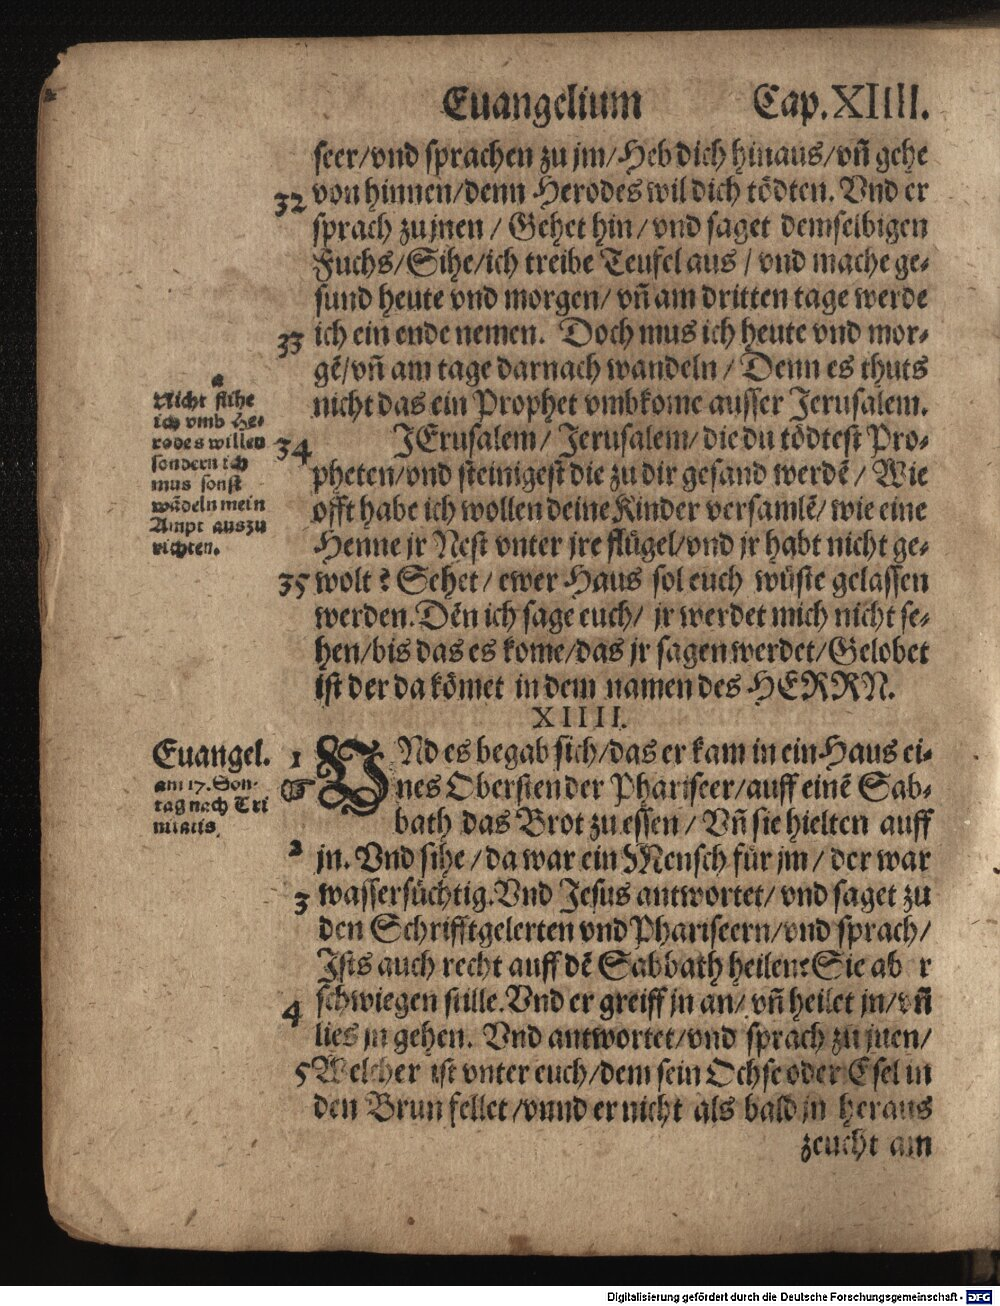 Euangelium Cap. XIIII.
seer/vnd sprachen zu jm/Heb dich hinaus/vñ gehe
32 von hinnen/denn Herodes wil dich tödten. Vnd er
sprach zu jnen / Gehet hin / vnd saget demselbigen
Fuchs/Sihe/ich treibe Teufel aus / vnd mache ge-
sund heute vnd morgen/ vñ am dritten tage werde
33 ich ein ende nemen. Doch mus ich heute vnd mor-
gẽ/vñ am tage darnach wandeln / Denn es thuts
nicht das ein Prophet vmbkome ausser Jerusalem.
a
Nicht flihe
ich vmb He-
rodes willen
sondern ich
mus sonst
wãdeln mein
Ampt auszu
richten.
34 JErusalem/ Jerusalem/ die du tödtest Pro-
pheten/vnd steinigest die zu dir gesand werdẽ / Wie
offt habe ich wollen deine Kinder versamlẽ/ wie eine
Henne jr Nest vnter jre flügel/vnd jr habt nicht ge-
35 wolt? Sehet/ ewer Haus sol euch wüste gelassen
werden. Dẽn ich sage euch/ jr werdet mich nicht se-
hen/bis das es kome/das jr sagen werdet/Gelobet
ist der da kömet in dem namen des HERRN.
XIIII.
Euangel.
am 17. Son-
tag nach Tri
nitatis.
1 VNd es begab sich/das er kam in ein Haus ei-
nes Obersten der Phariseer/auff einẽ Sab-
bath das Brot zu essen / Vñ sie hielten auff
2 jn. Vnd sihe / da war ein Mensch für jm / der war
3 wassersüchtig. Vnd Jesus antwortet/ vnd saget zu
den Schrifftgelerten vnd Phariseern/vnd sprach/
Ists auch recht auff dẽ Sabbath heilen? Sie ab r
4 schwiegen stille. Vnd er greiff jn an/ vñ heilet jn/vñ
lies jn gehen. Vnd antwortet/vnd sprach zu jnen/
5 Welcher ist vnter euch/dem sein Ochse oder Esel in
den Brun fellet /vnnd er nicht als bald jn heraus
zeucht am
Digitalisierung gefördert durch die Deutsche Forschungsgemeinschaft - DFG